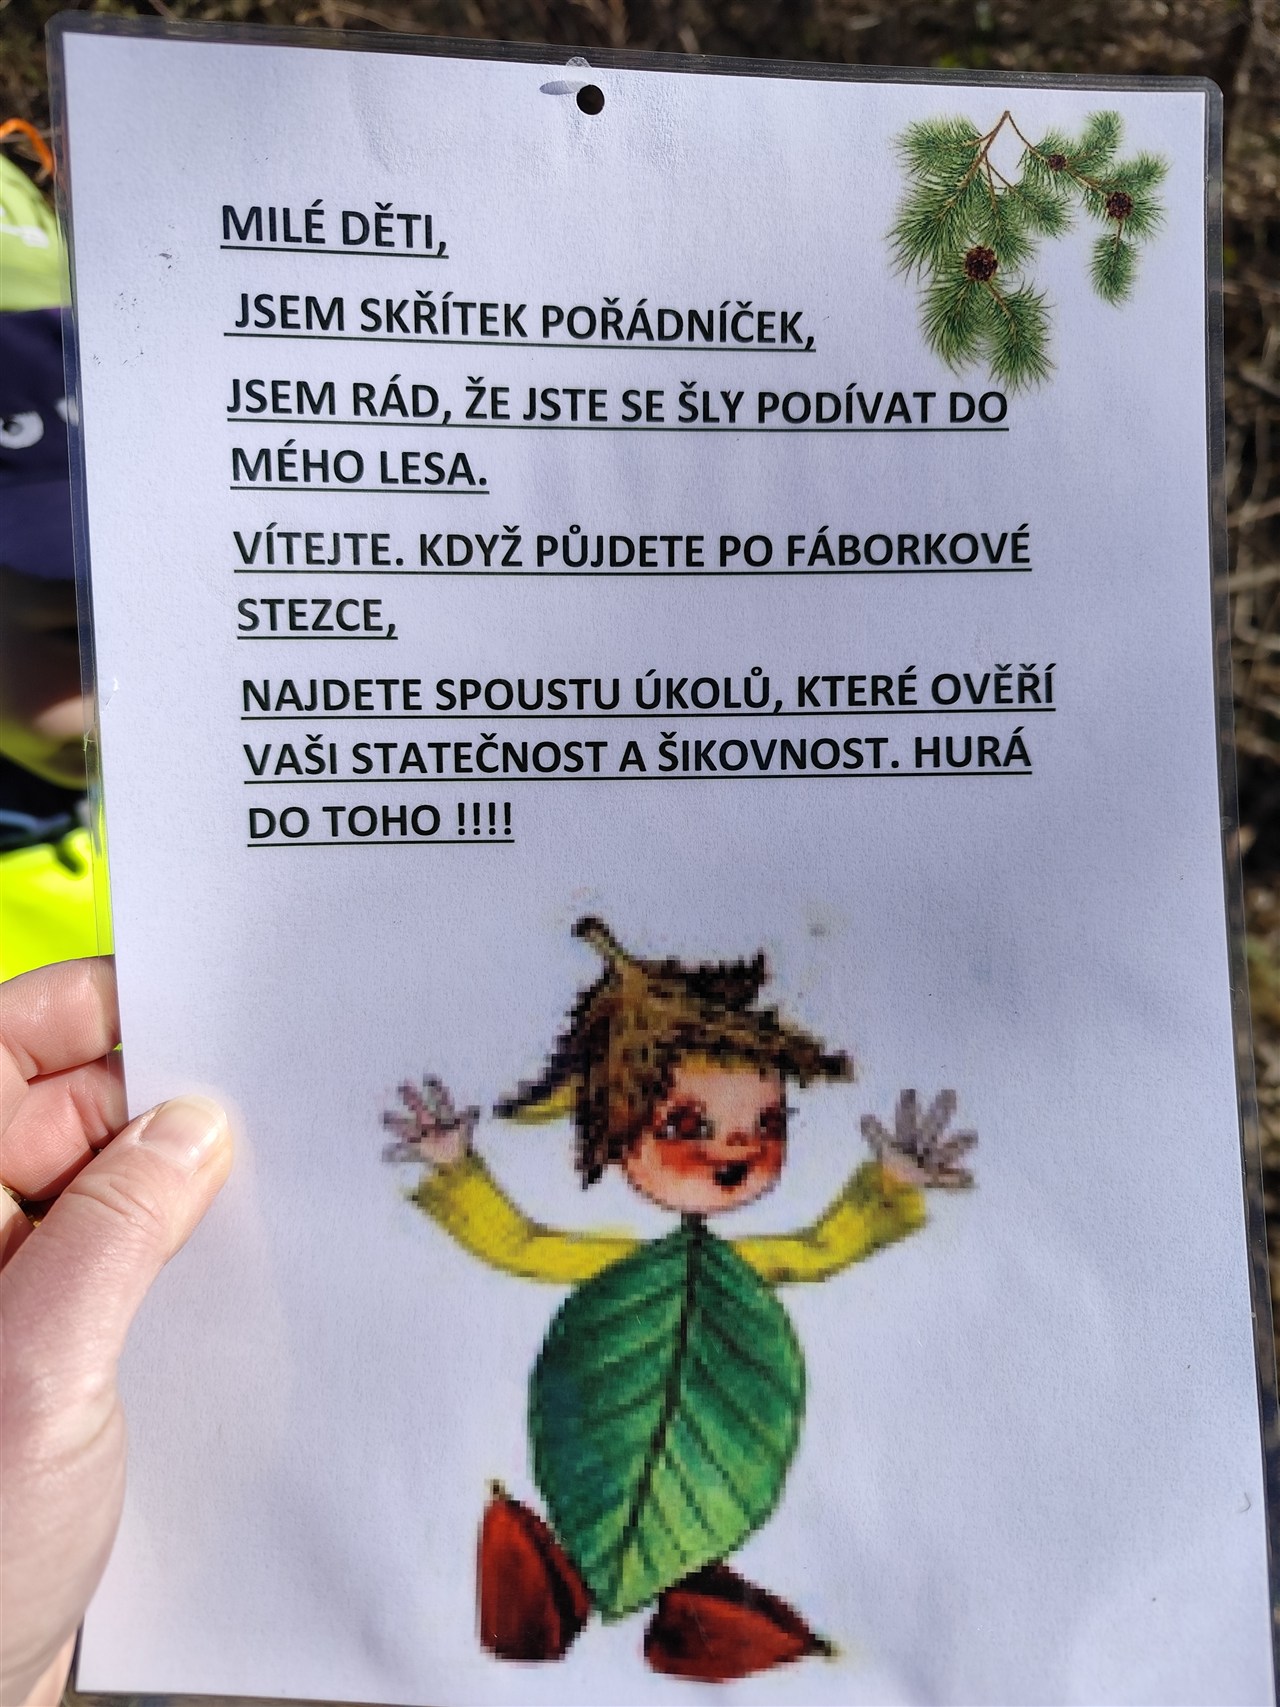 MILÉ DĚTI,
JSEM SKŘÍTEK POŘÁDNÍČEK,
JSEM RÁD, ŽE JSTE SE ŠLY PODÍVAT DO
MÉHO LESA.
VÍTEJTE. KDYŽ PŮJDETE PO FÁBORKOVÉ
STEZCE,
NAJDETE SPOUSTU ÚKOLŮ, KTERÉ OVĚŘÍ
VAŠI STATEČNOST A ŠIKOVNOST. HURÁ
DO TOHO !!!!